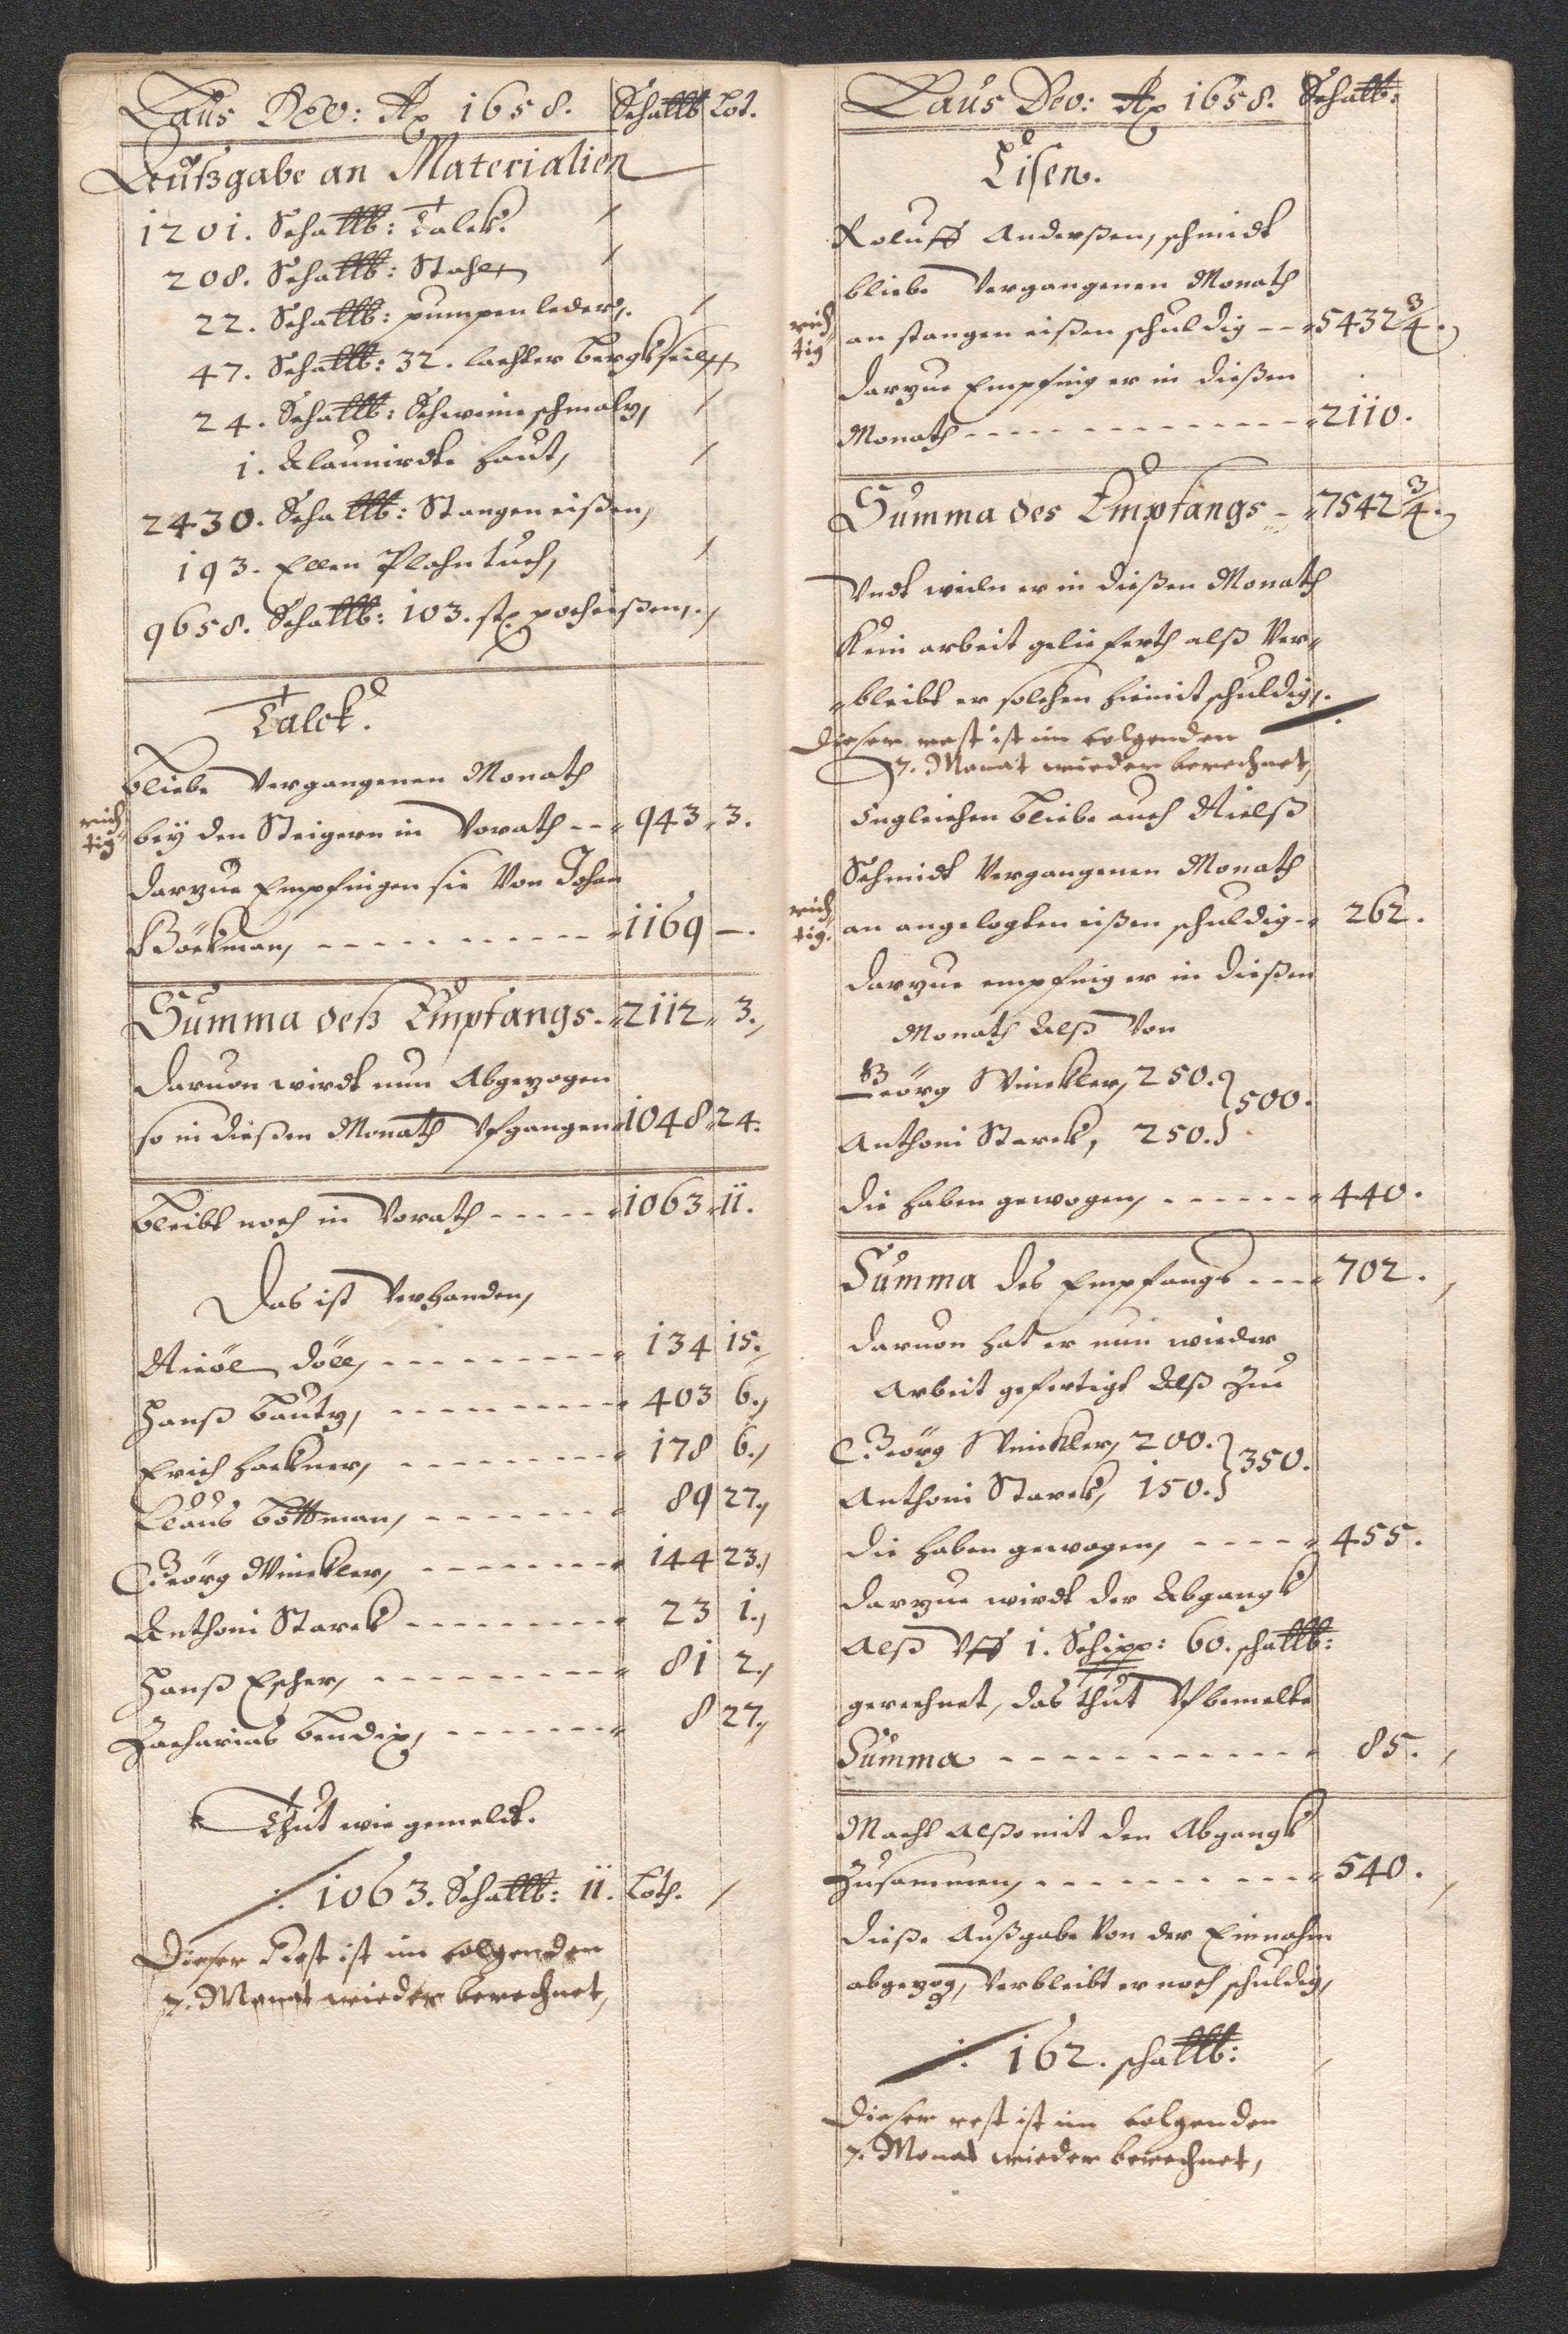 Laus Deo: Aº 1658. Schallb Lot.
Außgabe an Materialien
1201. Schallb: Talck.
208. Schallb: Stahl
22. Schallb: pumpen leder,
47. Schallb: 32. lachter bergkseil
24. Schallb: Schweine schmaltz,
1. Alaunirdte haut,
2430. Schallb: Stangen eißen,
193. Ellen Plahn tuch,
9658. Schallb: 103. st. pocheißen,
Talck.
bliebe Vergangenen Monath
rich
tig
bey den Steigern in Vorath - - 943. 3.
darzue Empfingen sie Von Johan
Böckman, - - - 1169 —.
Summa deß Empfangs - 2112. 3.
daruon wirdt nun Abgezogen
so in dießen Monath Vfgangen 1048 24.
bleibt noch in Vorath - - - 1063. 11.
Das ist Verhanden,
Döll, - - - 134 15.
Hanß bautz, - - - 403 6.
Erich Hackner, - - - 178 6.
Claus bottman, - - - 89 27.
Geörg Winckler, - - - 144 23.
Anthoni Starck - - - 23 1.
Hanß Escher, - - - 81 2.
Zacharias bendix, - - - 8 27.
Thut wie gemeldt.
1063. Schallb: 11. Loth.
Dieser Rest ist im volgenden
7. Monat wieder berechnet,
Laus Deo: Aº 1658. Schallb:
Eisen.
Roluff Anderßen, schmidt
bliebe Vergangenen Monath
rich
tig
an stangen eißen schuldig - - 5432 3/4.
darzue Empfing er in dießen
Monath - - - 2110.
Summa des Empfangs - 7542 3/4.
Vndt weiln er in dießen Monath
Kein arbeit gelieferth alß Ver-
bleibt er solchen hiemit schuldig,
Dieser rest ist im volgenden
7. Monat wieder berechnet,
Ingleichen bliebe auch Nielß
Schmidt Vergangenen Monath
rich
tig.
an angelegten eißen schuldig - 262.
darzue empfing er in dießen
Monath Alß Von
Geörg Winckler, 250. } 500.
Anthoni Starck, 250. }
die haben gewogen, - - - 440.
Summa des Empfangs - - - 702.
daruon hat er nun wieder
Arbeit gefertigt Alß Zu
Geörg Winckler, 200. } 350.
Anthoni Starck, 150. }
die haben gewogen, - - - 455.
darzue wirdt der Abgangk
Alß Vff 1. Schipp: 60. schallb:
gerechnet, das thut Vf bemelte
Summa - - - 85.
Macht Alßo mit den Abgangk
Zusammen, - - - 540.
dieße Außgabe Von der Einnahm
abgezog, Verbleibt er noch schuldig,
162. schallb:
Dieser rest ist im volgenden
7. Monat wieder berechnet,